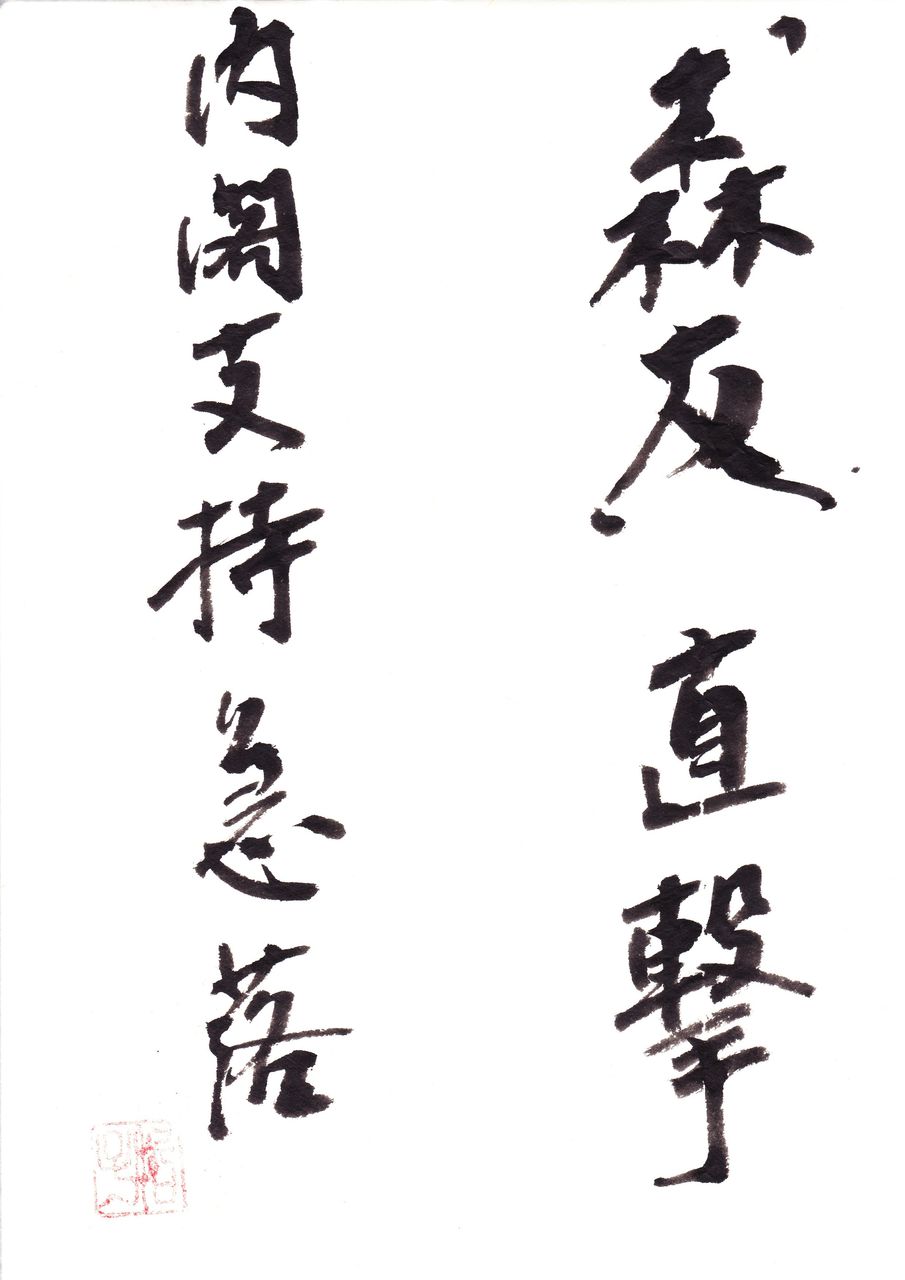 森友 直撃
内閣支持急落